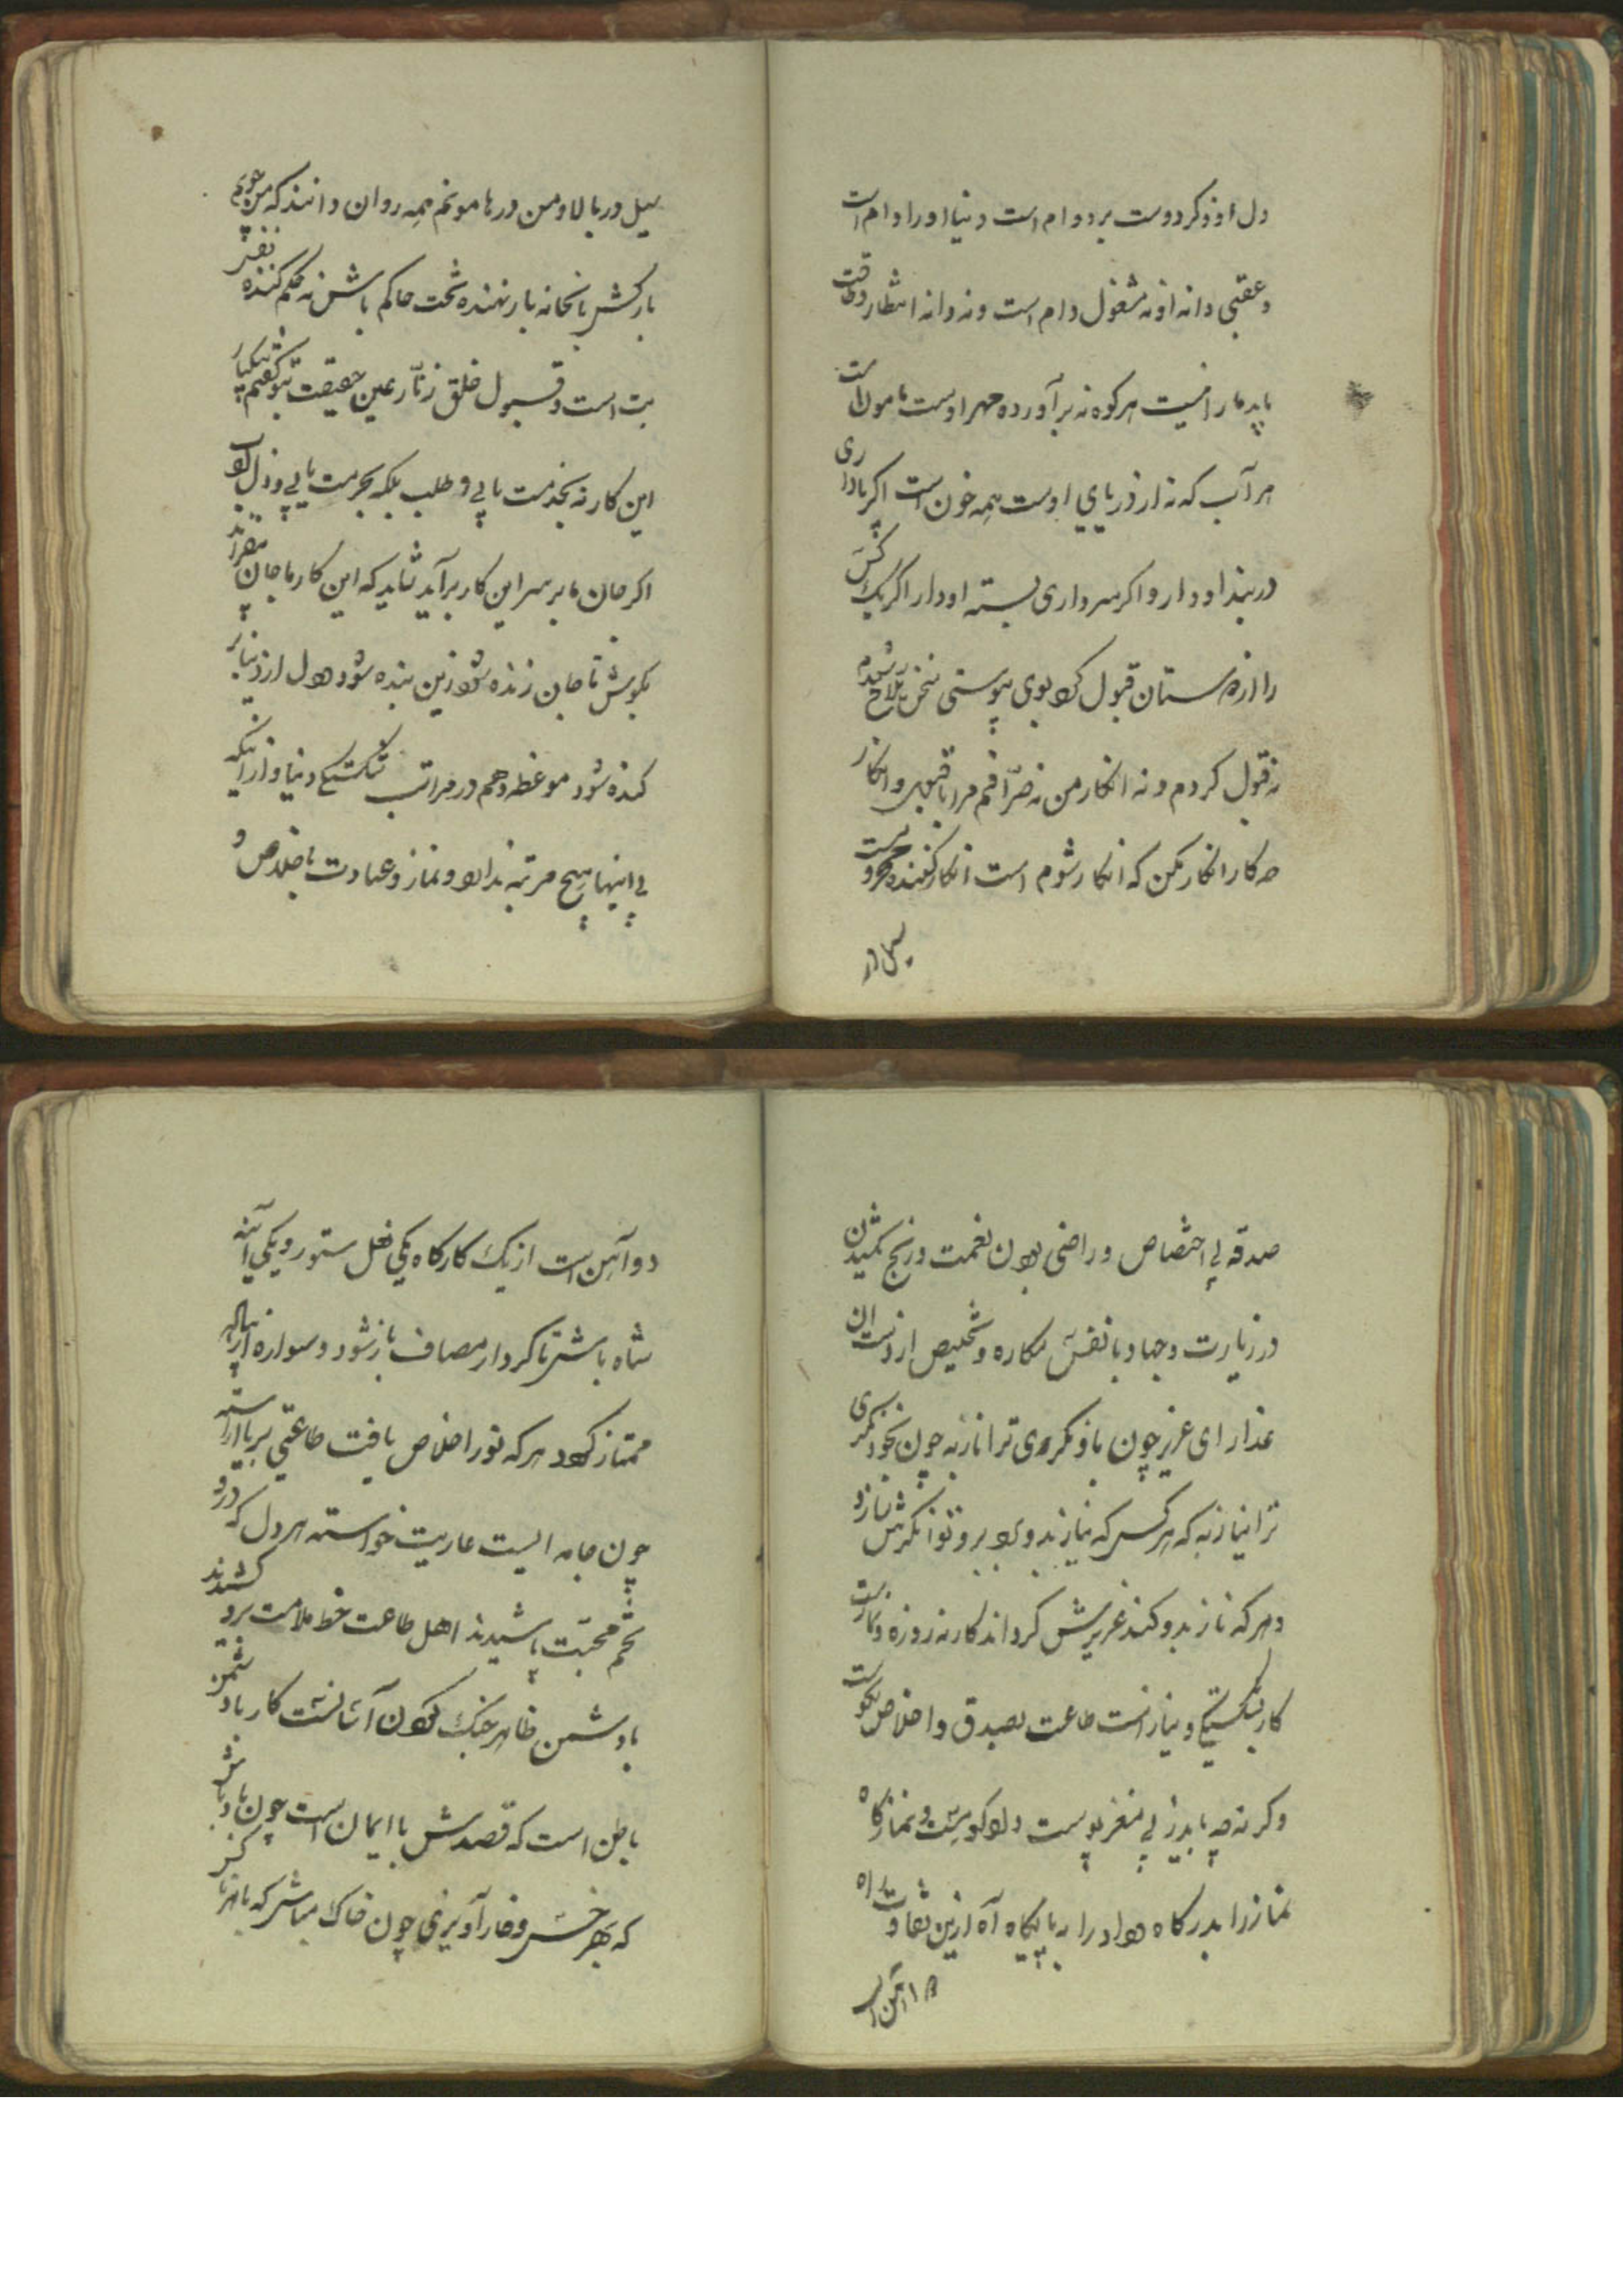 دل او ذکر دوست بر دوام است دنیا او را دام است
و عقبی دانه او نه مشغول دام است و نه دانه انتظار وقت
باید مار افیست هر کوه نه برآورده مهر اوست هامون است
هر آب که نه از دریای اوست همه خون است اکر باداری
در بند او دار و اکر سرداری بسته او دار اکر یک کس
را از دوستان قبول کرد بوی پیوستی
نه قبول کردم و نه انکار من نه صرافم مرا با قبول و انکار
چه کار انکار مکن که انکار شوم است انکار کننده محروم است
سیل از
سیل دریا بالا و من در هامونم همه روان دانند که من چونم
بارکش باش نه بار نهنده تحت حاکم باش نه حکم کننده نفس
بت است و قبول خلق زنار عین حقیقت بتو گفتم بیکبار
این کار نه بخدمت یابی و طلب بلکه بحرمت یابی و ادب
اکر جان ما بر سر این کار برآید شاید که این کار ما جان
بکوش تا جان زنده شود زین بنده شود دل از دنیا بر
کنده شود موعظه دهم در مراتب شکستگی دنیا و از آنکه
بی اینها هیچ مرتبه ندارد و نماز و عبادت باخلاص و
صدقه بی اختصاص و راضی بودن نعمت و رنج کشیدن
در زیارت و جهاد با نفس مکاره و تخلیص از دست آن
غدار ای عزیز چون باو نکری ترا ناز به چون بخود نکری
ترا نیاز به که هر کس که نیاز بدو برد توانکرش سازد
و هر که ناز بدو کند عزیزش کرداند کار نه روزه و نماز است
کار شکستگی و نیاز است طاعت بصدق و اخلاص نکوست
و کرنه چه باید از بی مغز پوست دل و نماز کاه
نماز را بدرکاه هوا در را به پایکاه آه ازین تفاوت راه
دو آهن است
دو آهن است از یک کارکاه یکی نعل ستور و یکی آینه
شاه باش تا کردار مصاف باز شود و سواره از پیاده
ممتاز کردد هر که نور اخلاص یافت طاعتی بریا آراسته
چون جامه ایست عاریت خواسته هر دل که درو
تخم محبت پاشیدند اهل طاعت خط ملامت برو کشیدند
با دشمن ظاهر جنک کردن آسانست کار با دشمن
باطن است که قصدش با ایمان است چون باد باش
که بهر خس و خار آویزی چون خاک مباش که با هر ناکس